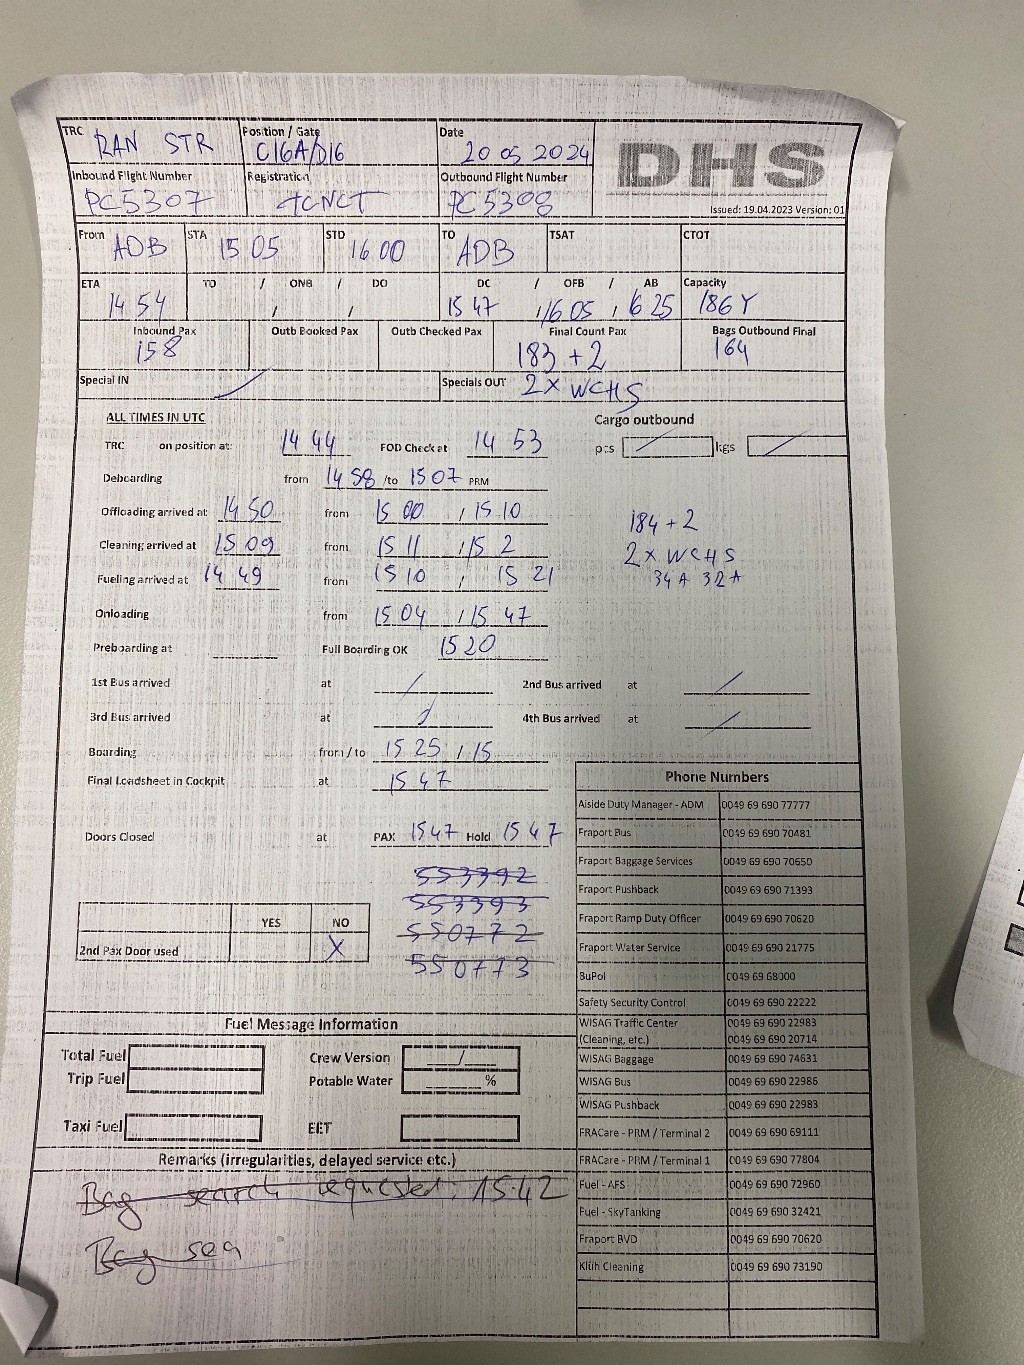 TRC RAN STR Position / Gate C16A/D16 Date 20 05 2024 DHS
Inbound Flight Number PC5307 Registration TCNCT Outbound Flight Number PC5308 Issued: 19.04.2023 Version: 01
From ADB STA 15 05 STD 16 00 TO ADB TSAT CTOT
ETA 14 54 TO / ONB / DO / / DC 15 47 / OFB / AB / 16 05 / 16 25 Capacity 186Y
Inbound Pax 158 Outb Booked Pax Outb Checked Pax Final Count Pax 183 + 2 Bags Outbound Final 164
Special IN / Specials OUT 2 x WCHS
ALL TIMES IN UTC Cargo outbound
TRC on position at: 14 44 FOD Check at 14 53 pcs / kgs /
Deboarding from 14 58 /to 15 07 PRM
Offloading arrived at: 14 50 from 15 00 / 15 10 184 + 2
Cleaning arrived at 15 09 from 15 11 / 15 2 2 x WCHS
Fueling arrived at 14 49 from 15 10 / 15 21 34A 32A
Onloading from 15 04 / 15 47
Preboarding at Full Boarding OK 15 20
1st Bus arrived at / 2nd Bus arrived at /
3rd Bus arrived at / 4th Bus arrived at /
Boarding from / to 15 25 / 15
Final Loadsheet in Cockpit at 15 47
Doors Closed at PAX 15 47 Hold 15 47
553392
553393
550772
550773
YES NO
2nd Pax Door used X
Phone Numbers
Aiside Duty Manager - ADM 0049 69 690 77777
Fraport Bus 0049 69 690 70481
Fraport Baggage Services 0049 69 690 70650
Fraport Pushback 0049 69 690 71393
Fraport Ramp Duty Officer 0049 69 690 70620
Fraport Water Service 0049 69 690 21775
BuPol 0049 69 68000
Safety Security Control 0049 69 690 22222
WISAG Traffic Center 0049 69 690 22983
(Cleaning, etc.) 0049 69 690 20714
WISAG Baggage 0049 69 690 74631
WISAG Bus 0049 69 690 22986
WISAG Pushback 0049 69 690 22983
FRACare - PRM / Terminal 2 0049 69 690 69111
FRACare - PRM / Terminal 1 0049 69 690 77804
Fuel - AFS 0049 69 690 72960
Fuel - SkyTanking 0049 69 690 32421
Fraport BVD 0049 69 690 70620
Klüh Cleaning 0049 69 690 73190
Fuel Message Information
Total Fuel Crew Version /
Trip Fuel Potable Water %
Taxi Fuel EET
Remarks (irregularities, delayed service etc.)
Bag search requested: 15:42
Bag sea